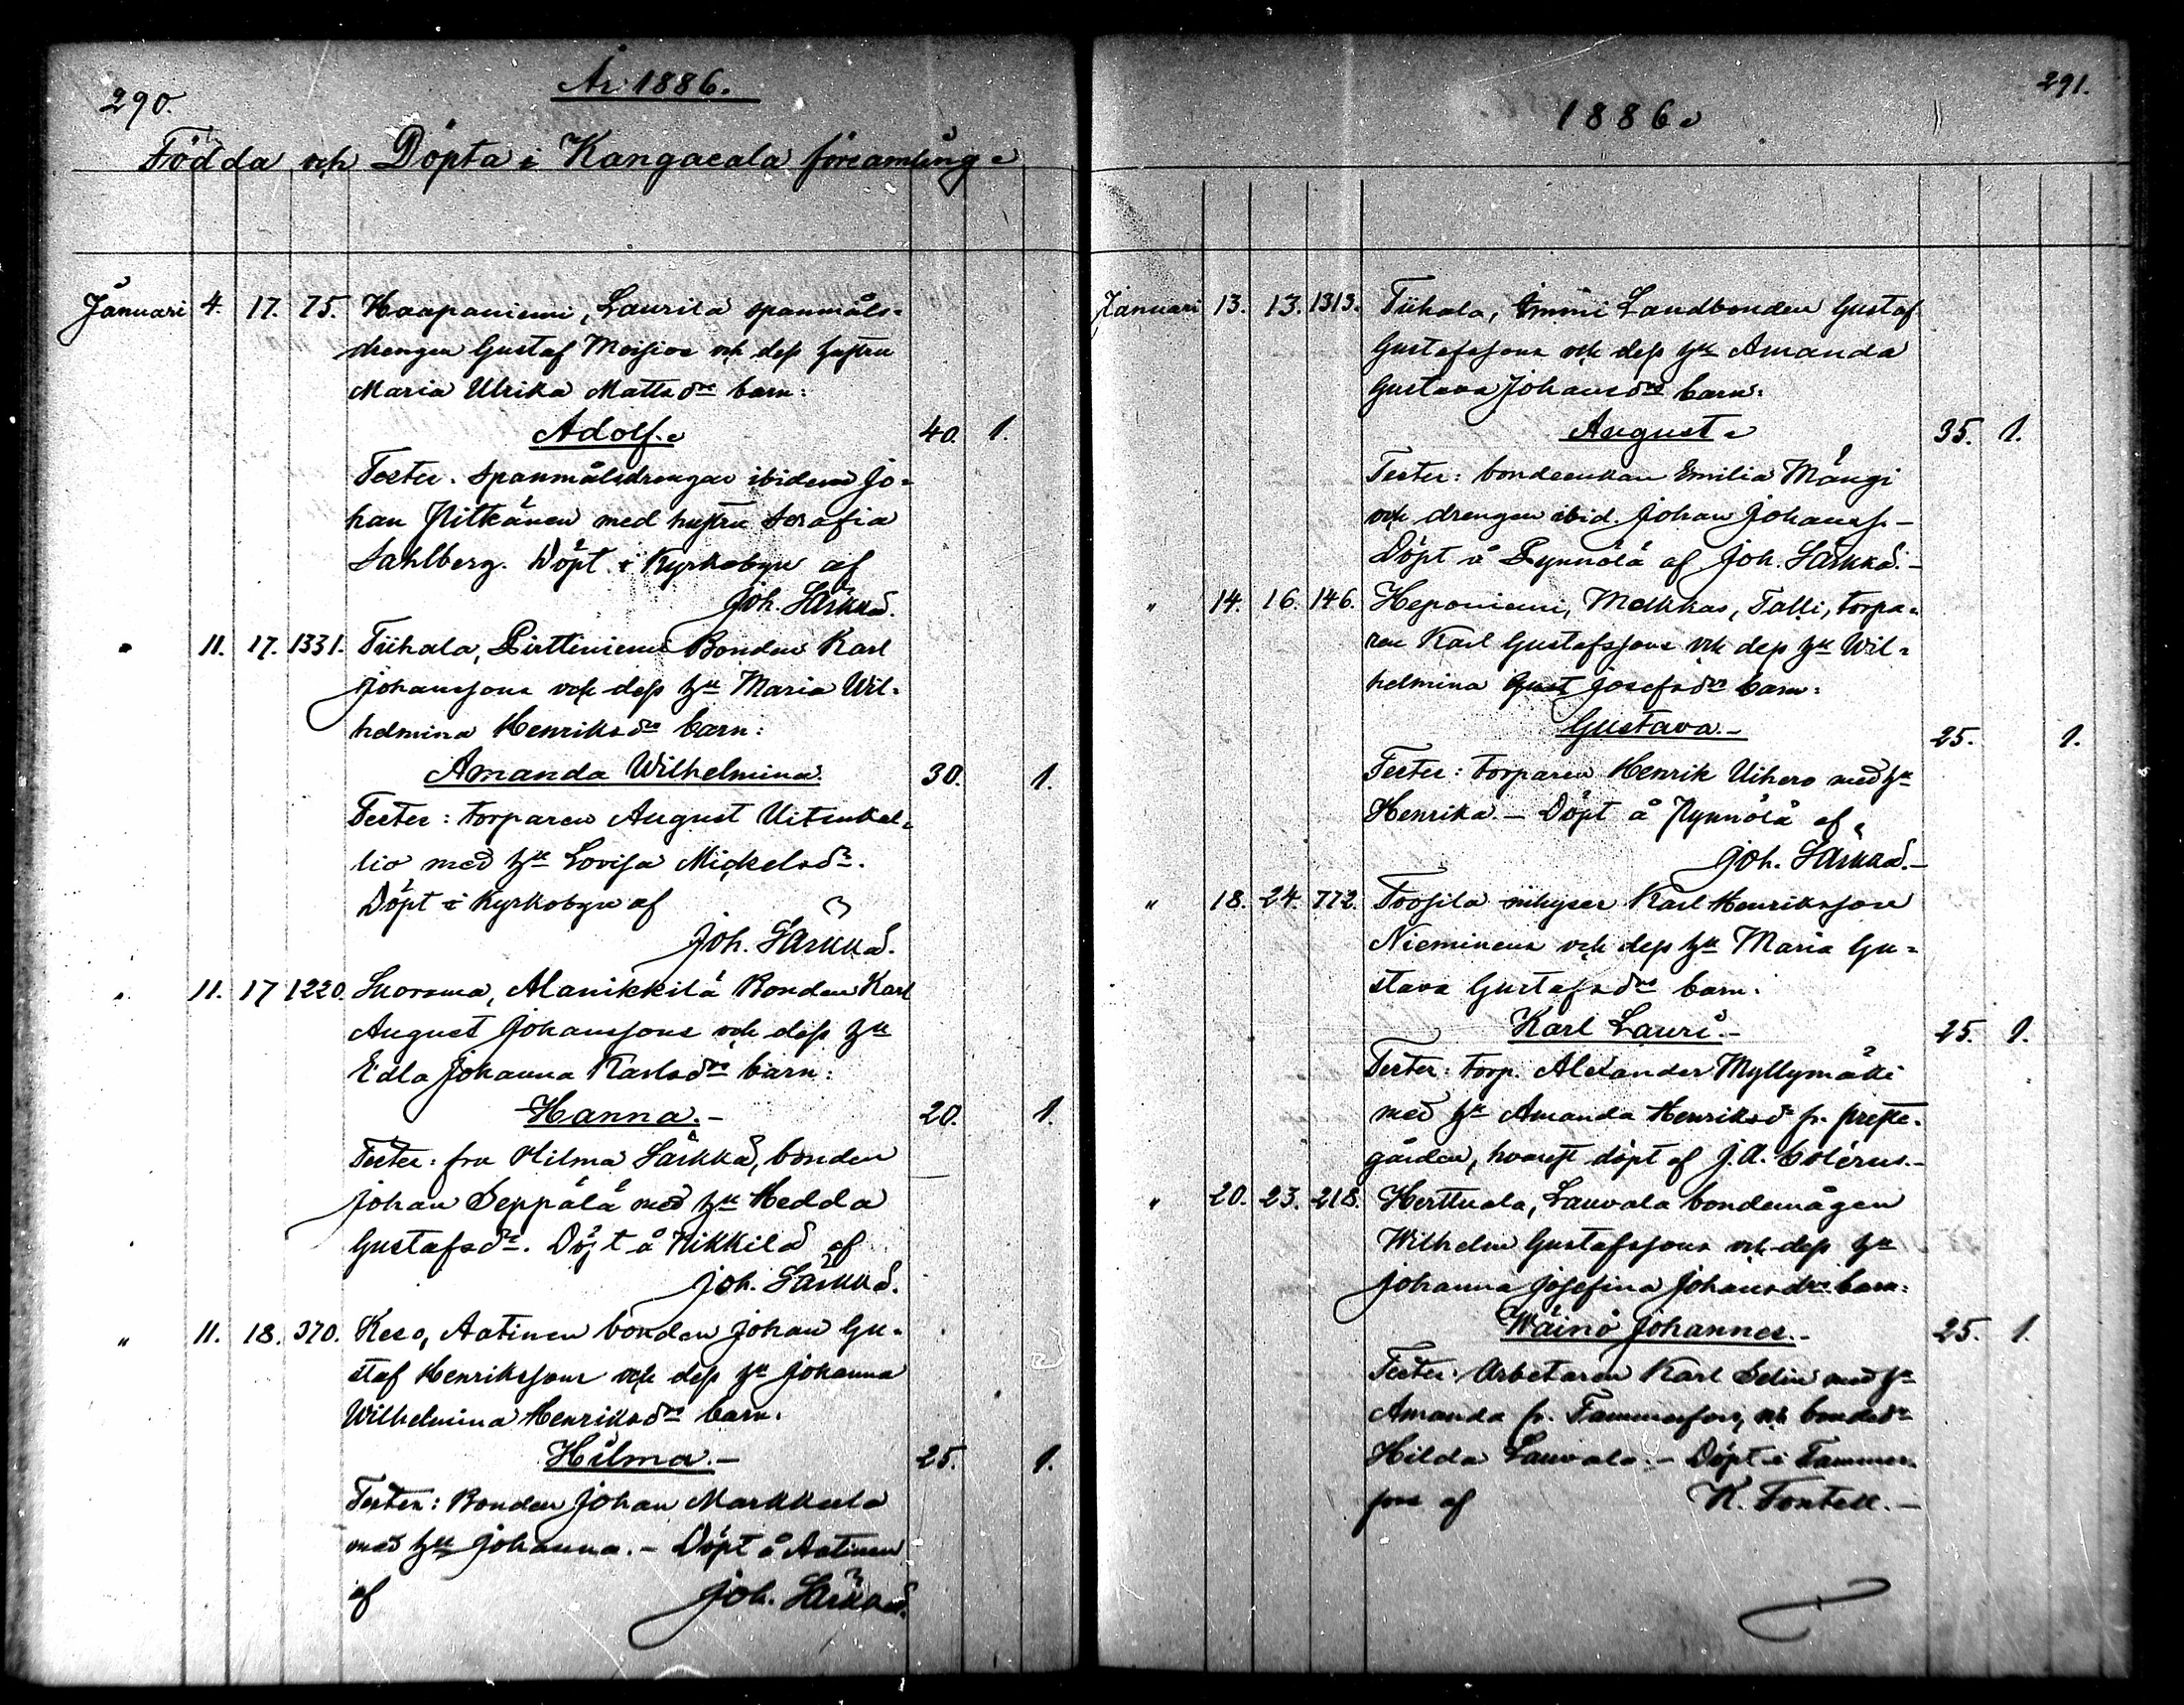 290.
År 1886.
Födda och Döpta i Kangasala församling
Januari 4. 17. 75. Haapaniemi, Laurila spanmåls-
drengen Gustaf Moisios och dess hustru
Maria Ulrika Mattsdrs barn:
Adolf. 40. 1.
Testes. Spanmålsdrengen ibidem Jo-
han Pitkänen med hustru Serafia
Sahlberg. Döpt i Kyrkobyn af
Joh. Särkkä.
" 11. 17. 1331. Tiihala, Pirttiniemi Bonden Karl
Johanssons och dess hu Maria Wil-
helmina Henriksdrs barn:
Amanda Wilhelmina. 30. 1.
Testes: torparen August Uitunkal-
lio med hu Lovisa Mickelsdr.
Döpt i Kyrkobyn af
Joh. Särkkä.
" 11. 17 1220. Suorama, Alanikkilä Bonden Karl
August Johanssons och dess hu
Edla Johanna Karlsdrs barn:
Hanna.- 20. 1.
Testes: fru Hilma Särkkä, bonden
Johan Seppälä med hu Hedda
Gustafsdr. Döpt å Nikkilä af
Joh. Särkkä.
" 11. 18. 370. Keso, Aatinen bonden Johan Gu-
staf Henrikssons och dess hu Johanna
Wilhelmina Henriksdrs barn.
Hilma.- 25. 1.
Testes: Bonden Johan Markkula
med hu Johanna.- Döpt å Aatinen
af Joh. Särkkä.
291.
1886.
Januari 13. 13. 1313. Tiihala, Landbonden Gustaf
Gustafssons och dess hu Amanda
Gustava Johansdrs barn:
August 35. 1.
Testes: bondeenkan Emilia Mängi
och drengen ibid. Johan Johanss.-
Döpt å Pynnölä af Joh. Särkkä.-
" 14. 16. 146. Heponiemi, Malkkas, Talli, torpa-
ren Karl Gustafssons och dess hu Wil-
helmina Gust Josefsdrs barn:
Gustava.- 25. 1.
Testes: torparen Henrik Uihero med hu
Henrika.- Döpt å Pynnölä af
Joh. Särkkä.-
" 18. 24. 772. Toosila inhyses Karl Henriksson
Nieminens och dess hu Maria Gu-
stava Gustafsdrs barn:
Karl Lauri.- 25. 1.
Testes: torp. Alexander Myllymäki
med hu Amanda Henriksdr fr. preste-
gården, hvarest döpt af J.A. Colérus.-
" 20. 23. 218. Herttuala, Lauvala bondemågen
Wilhelm Gustafssons och dess hu
Johanna Josefina Johansdrs barn:
Wäinö Johannes.- 25. 1.
Testes: Arbetaren Karl Selin med hu
Amanda fr. Tammerfors, och bondedr
Hilda Lauvala.- Döpt i Tammer-
fors af K. Fontell.-